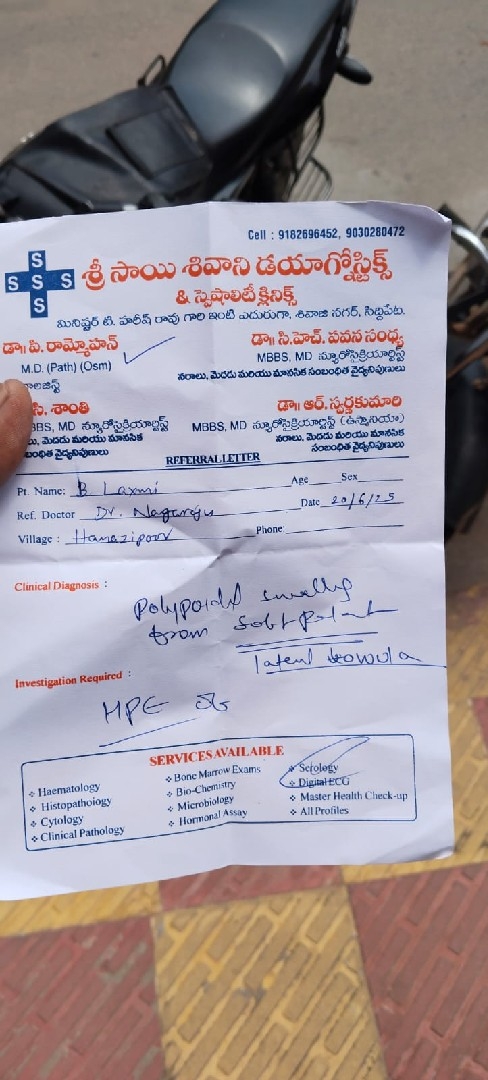 Cell : 9182696452, 9030280472
S
S S S
S
శ్రీ సాయి శివాని డయాగ్నోస్టిక్స్
& స్పెషాలిటీ క్లినిక్స్
మినిష్టర్ టి. హరీష్ రావు గారి ఇంటి ఎదురుగా, శివాజి నగర్, సిద్దిపేట.
డా॥ వి. రామ్మోహన్
M.D. (Path) (Osm)
డా॥ సి.హెచ్. పవన సంధ్య
MBBS, MD న్యూరోసైక్రియార్టిస్ట్
నరాలు, మెదడు మరియు మానసిక సంబంధిత వైద్యనిపుణులు
సి. శాంతి
BBS, MD న్యూరోసైక్రియార్టిస్ట్
మెదడు మరియు మానసిక
వైద్యనిపుణులు
డా॥ ఆర్. స్వర్ణకుమారి
MBBS, MD న్యూరోసైక్రియార్టిస్ట్ (ఉస్మానియా)
నరాలు, మెదడు మరియు మానసిక
సంబంధిత వైద్యనిపుణులు
REFERRAL LETTER
Pt. Name: B Laxmi Age Sex
Ref. Doctor Dr. Nagaraju Date 20/6/25
Village : Hanazipoor Phone:
Clinical Diagnosis :
from
Investigation Required :
HPE
SERVICES AVAILABLE
❖ Haematology
❖ Histopathology
❖ Cytology
❖ Clinical Pathology
❖ Bone Marrow Exams
❖ Bio-Chemistry
❖ Microbiology
❖ Hormonal Assay
❖ Serology
❖ Digital ECG
❖ Master Health Check-up
❖ All Profiles